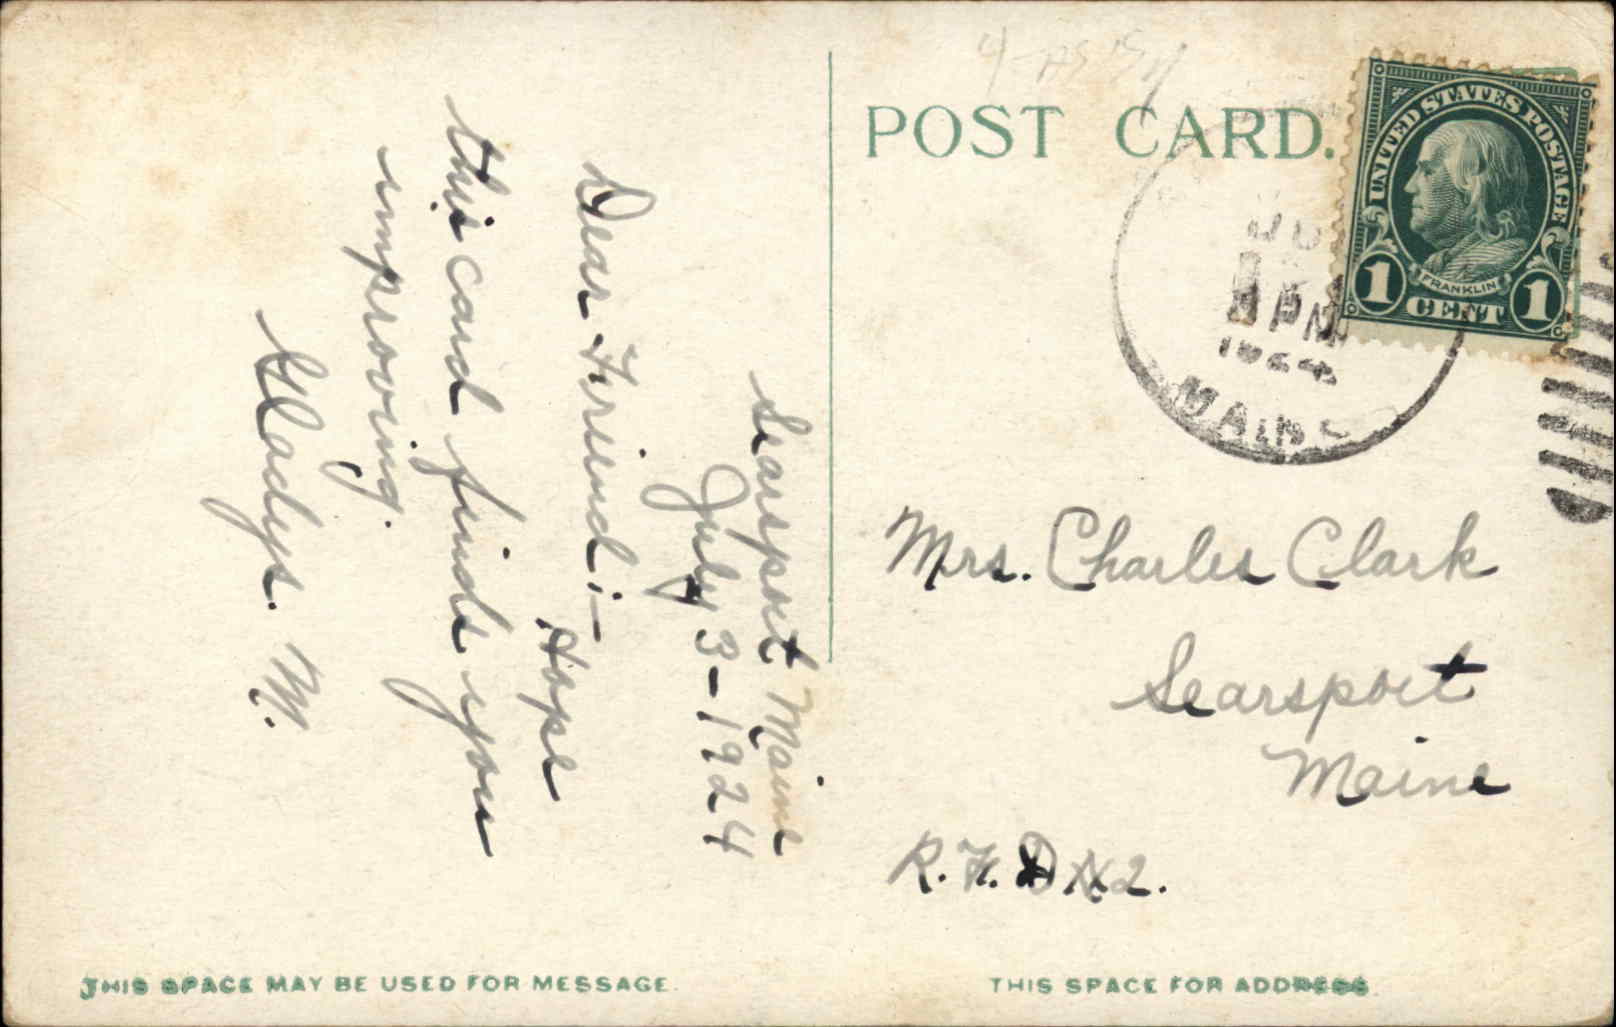 Searsport Maine
July 3-1924
Dear Friend:-
Hope
this card finds you
improving.
Gladys. M.
POST CARD.
UNITED STATES POSTAGE
FRANKLIN
1 CENT 1
PM
1924
MAINE
Mrs. Charles Clark
Searsport
Maine
R.F.D No. 2.
THIS SPACE MAY BE USED FOR MESSAGE.
THIS SPACE FOR ADDRESS.